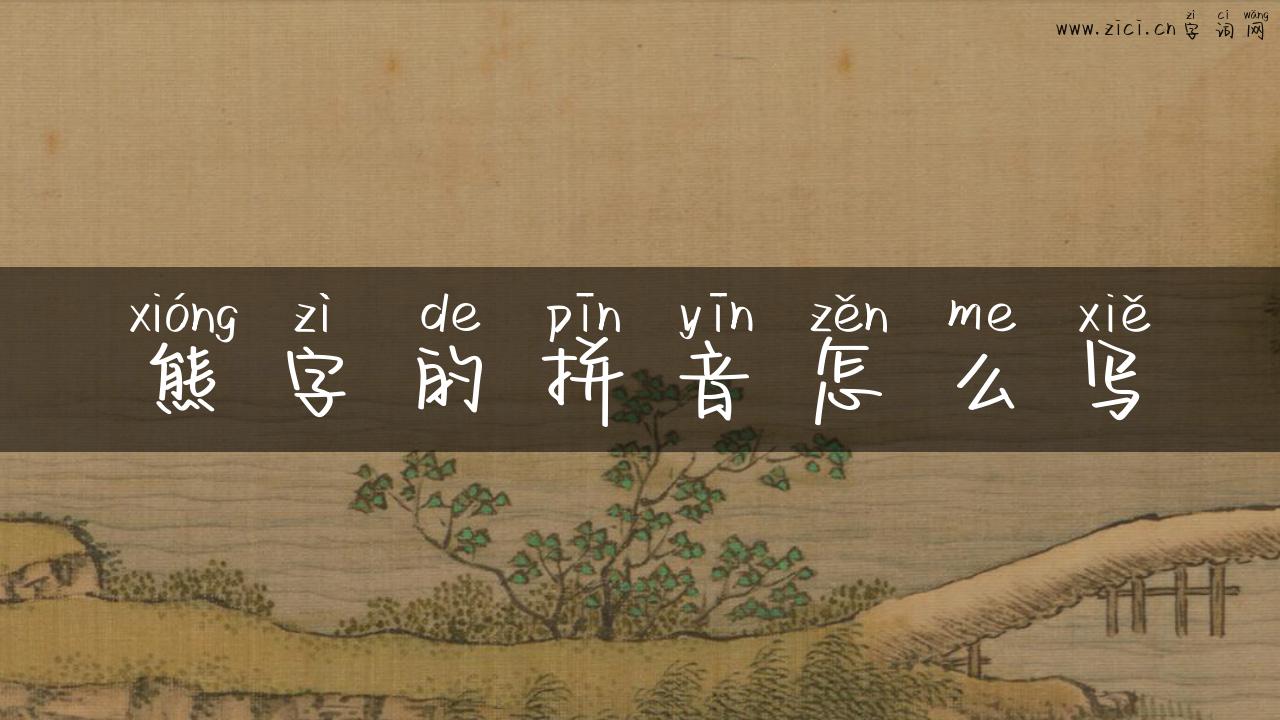 zì cí wǎng
www.zici.cn字词网
xióng zì de pīn yīn zěn me xiě
熊字的拼音怎么写